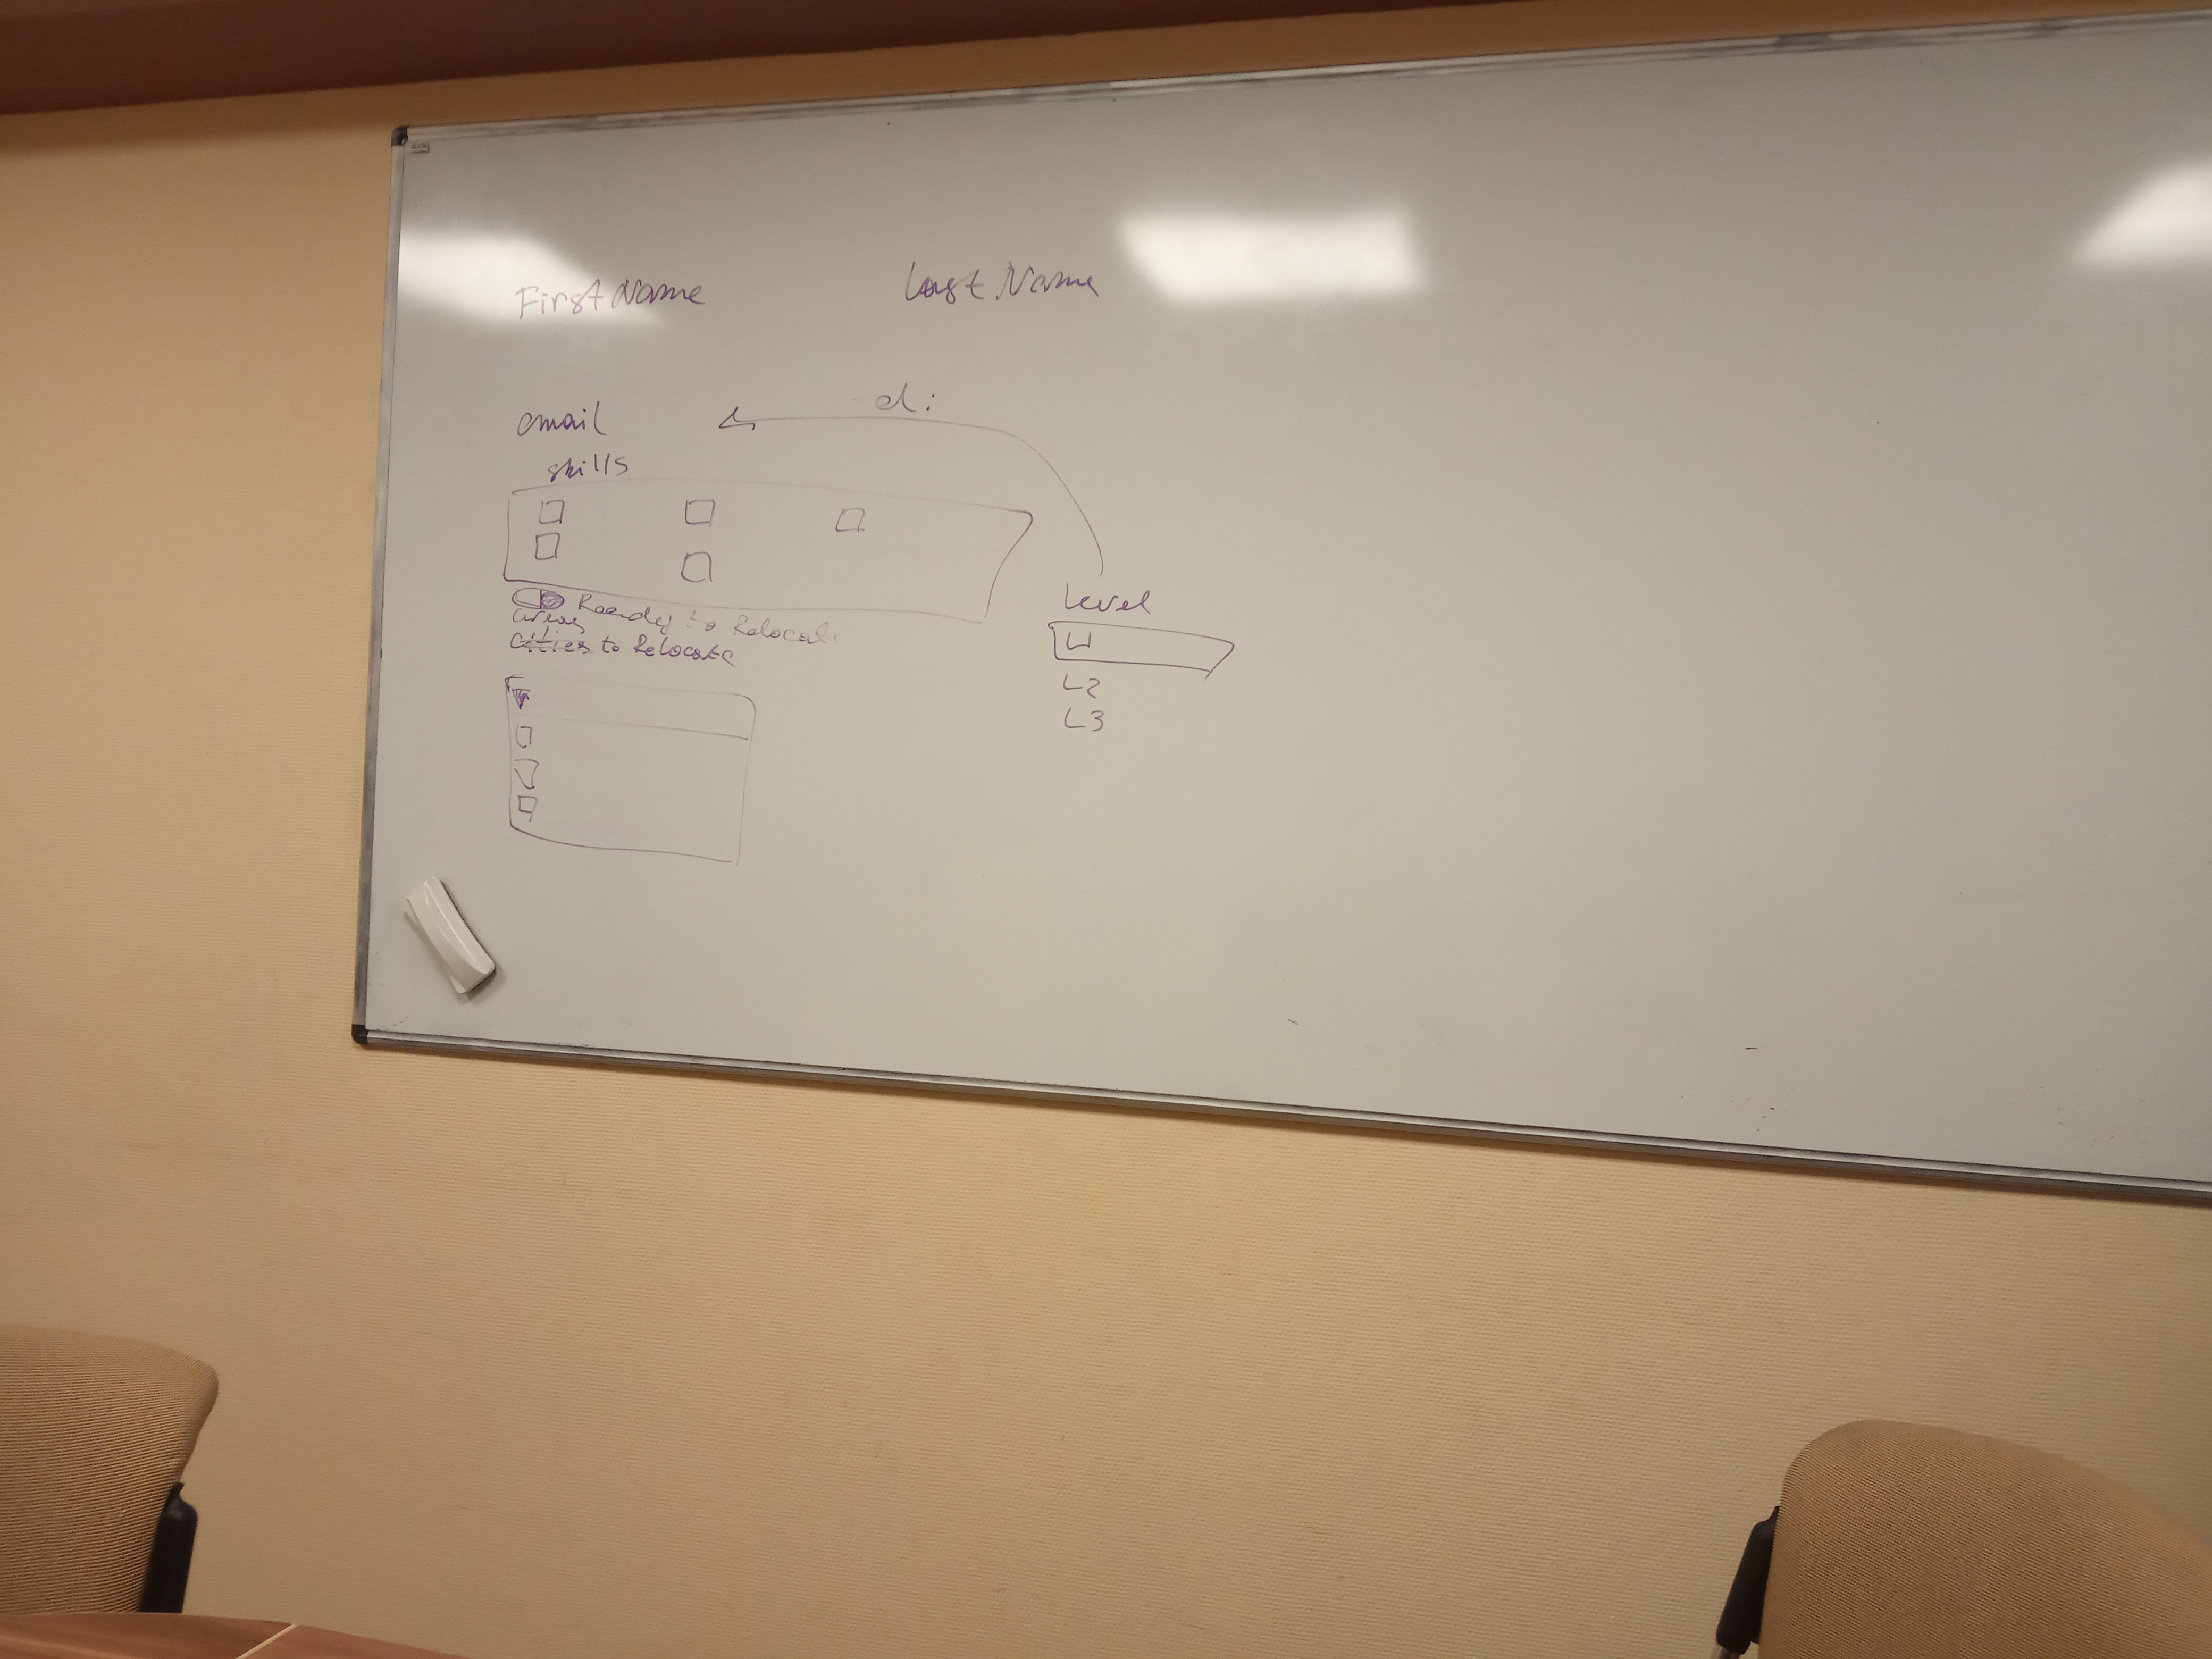 First Name
Last Name
email
skills
Ready to Relocate
areas
cities to Relocate
Level
L1
L2
L3